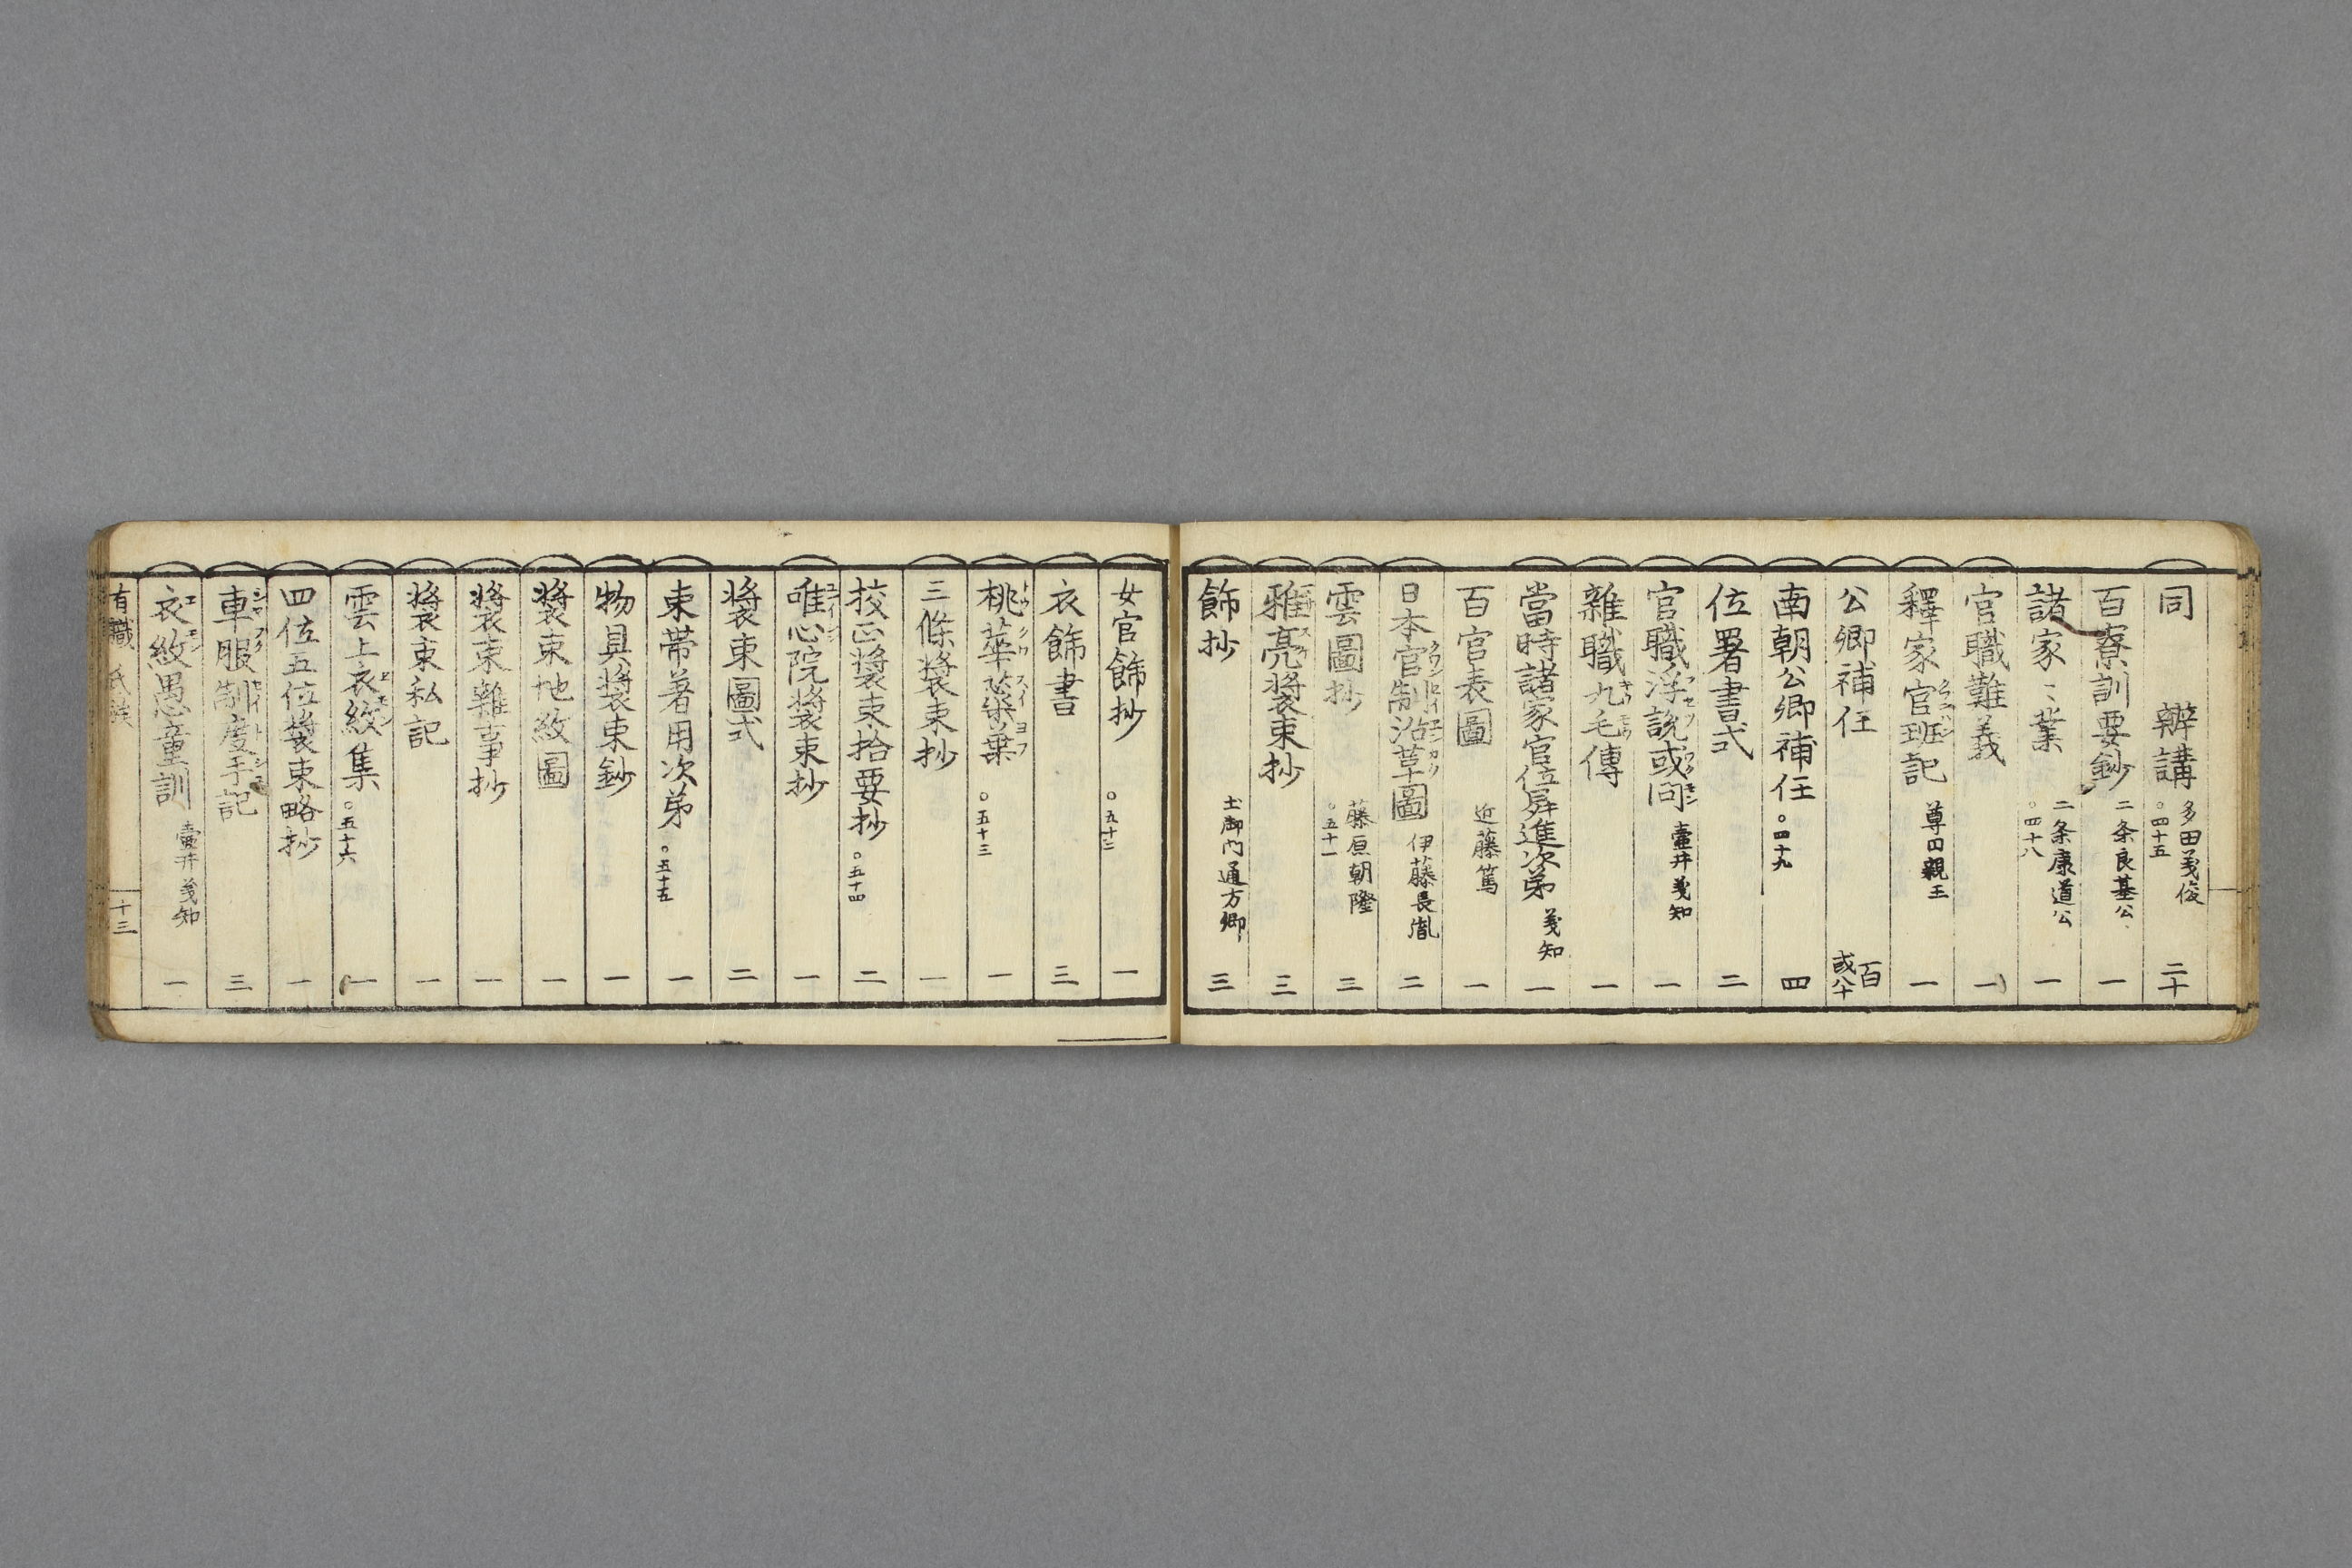 同　辯講 多田義俊 ○四十五 二十
百寮訓要鈔 二条良基公 一
諸家〻業 二条康道公 ○四十八 一
官職難義 一
釋家官班記 クワンハン 尊円親王 一
公卿補任 百 或八十
南朝公卿補任 ○四十九 四
位署書式 二
官職浮說或問 フセツワクモン 壷井義知 一
雜職九毛傳 キウモウ 一
當時諸家官位昇進次第 義知 一
百官表圖 近藤篤 一
日本官制沿革圖 伊藤長胤 二
雲圖抄 藤原朝隆 ○五十一 三
雅亮裝束抄 三
飾抄 土御門通方卿 三
女官飾抄 ○五十二 一
衣飾書 三
桃華蘂葉 トウクワスイヨフ ○五十三 一
三條裝束抄 一
校正裝束拾要抄 ○五十四 二
唯心院裝束抄 一
裝束圖式 二
束帶著用次第 ○五十五 一
物具裝束鈔 一
裝束地紋圖 一
裝束雜事抄 一
裝束私記 一
雲上衣紋集 エモン ○五十六 一
四位五位裝束略抄 一
車服制度手記 三
衣紋愚童訓 エモン 壷井義知 一
有職 氏族 十三